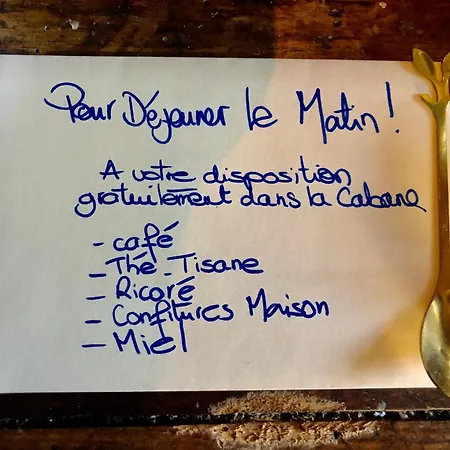 Pour Déjeuner le Matin !
A votre disposition
gratuitement dans la Cabane
- café
- Thé - Tisane
- Ricoré
- Confitures Maison
- Miel